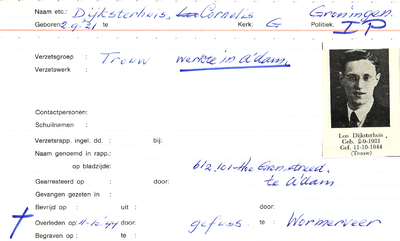 Naam etc.: Dijksterhuis, Cornelis Groningen
Geboren: 2-9-21 te Kerk: G Politiek: I P
Verzetsgroep : Trouw werkte in A'dam
Verzetswerk :
Contactpersonen:
Schuilnamen :
Verzetsrapp. ingel. dd. : bij:
Naam genoemd in rapp.:
op bladzijde: blz. 101
Gearresteerd op : door: te A'dam
Gevangen gezeten in :
Bevrijd op : uit : door:
Overleden op: 11-10-'44 door: gefuss. te : Wormerveer
Begraven op : te :
Lou Dijksterhuis
Geb. 2-9-1921
Gef. 11-10-1944
(Trouw)